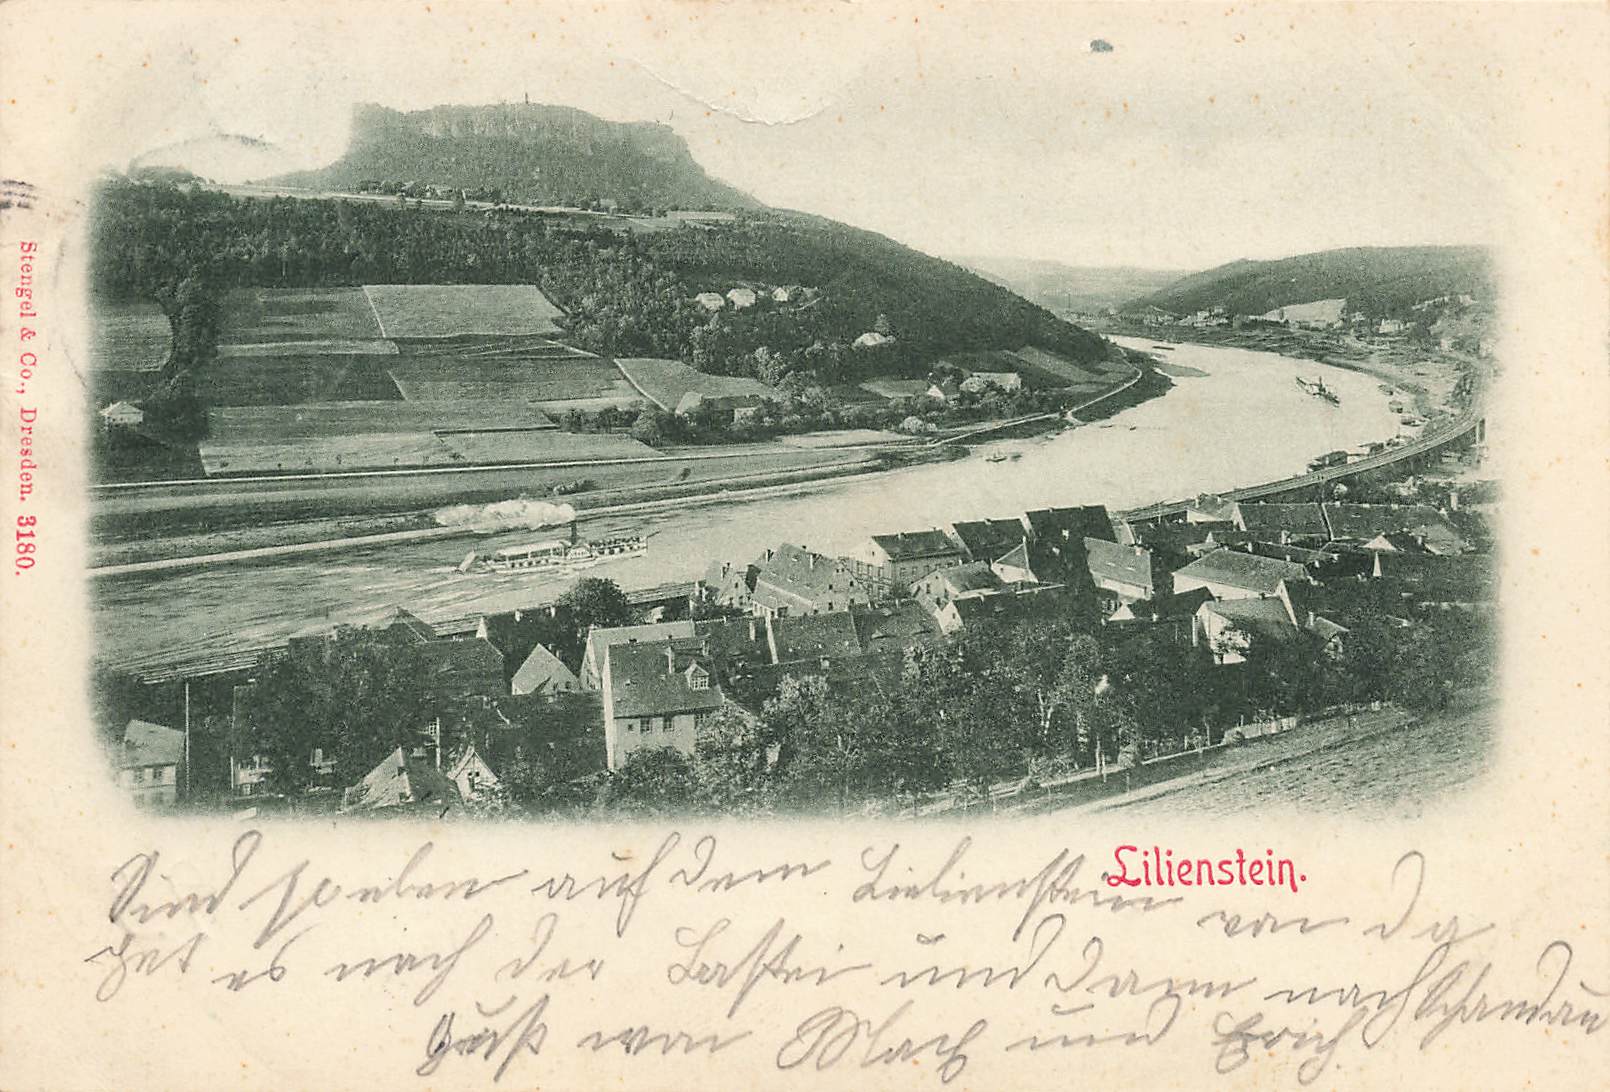 Stengel & Co., Dresden. 3180.
Lilienstein.
Sind soeben auf dem Lielienstein von da
het es nach der Bastei und dann nach Schandau
Gruß von Max und Erich.